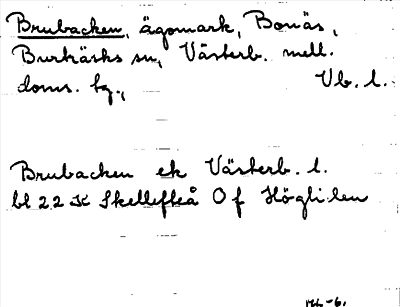 Brubacken, ägomark, Bonäs,
Burträsks sn, Västerb. mell.
doms. tg., Vb. l.
Brubacken ek Västerb. l.
bl 22 K Skellefteå 0 f Högliden